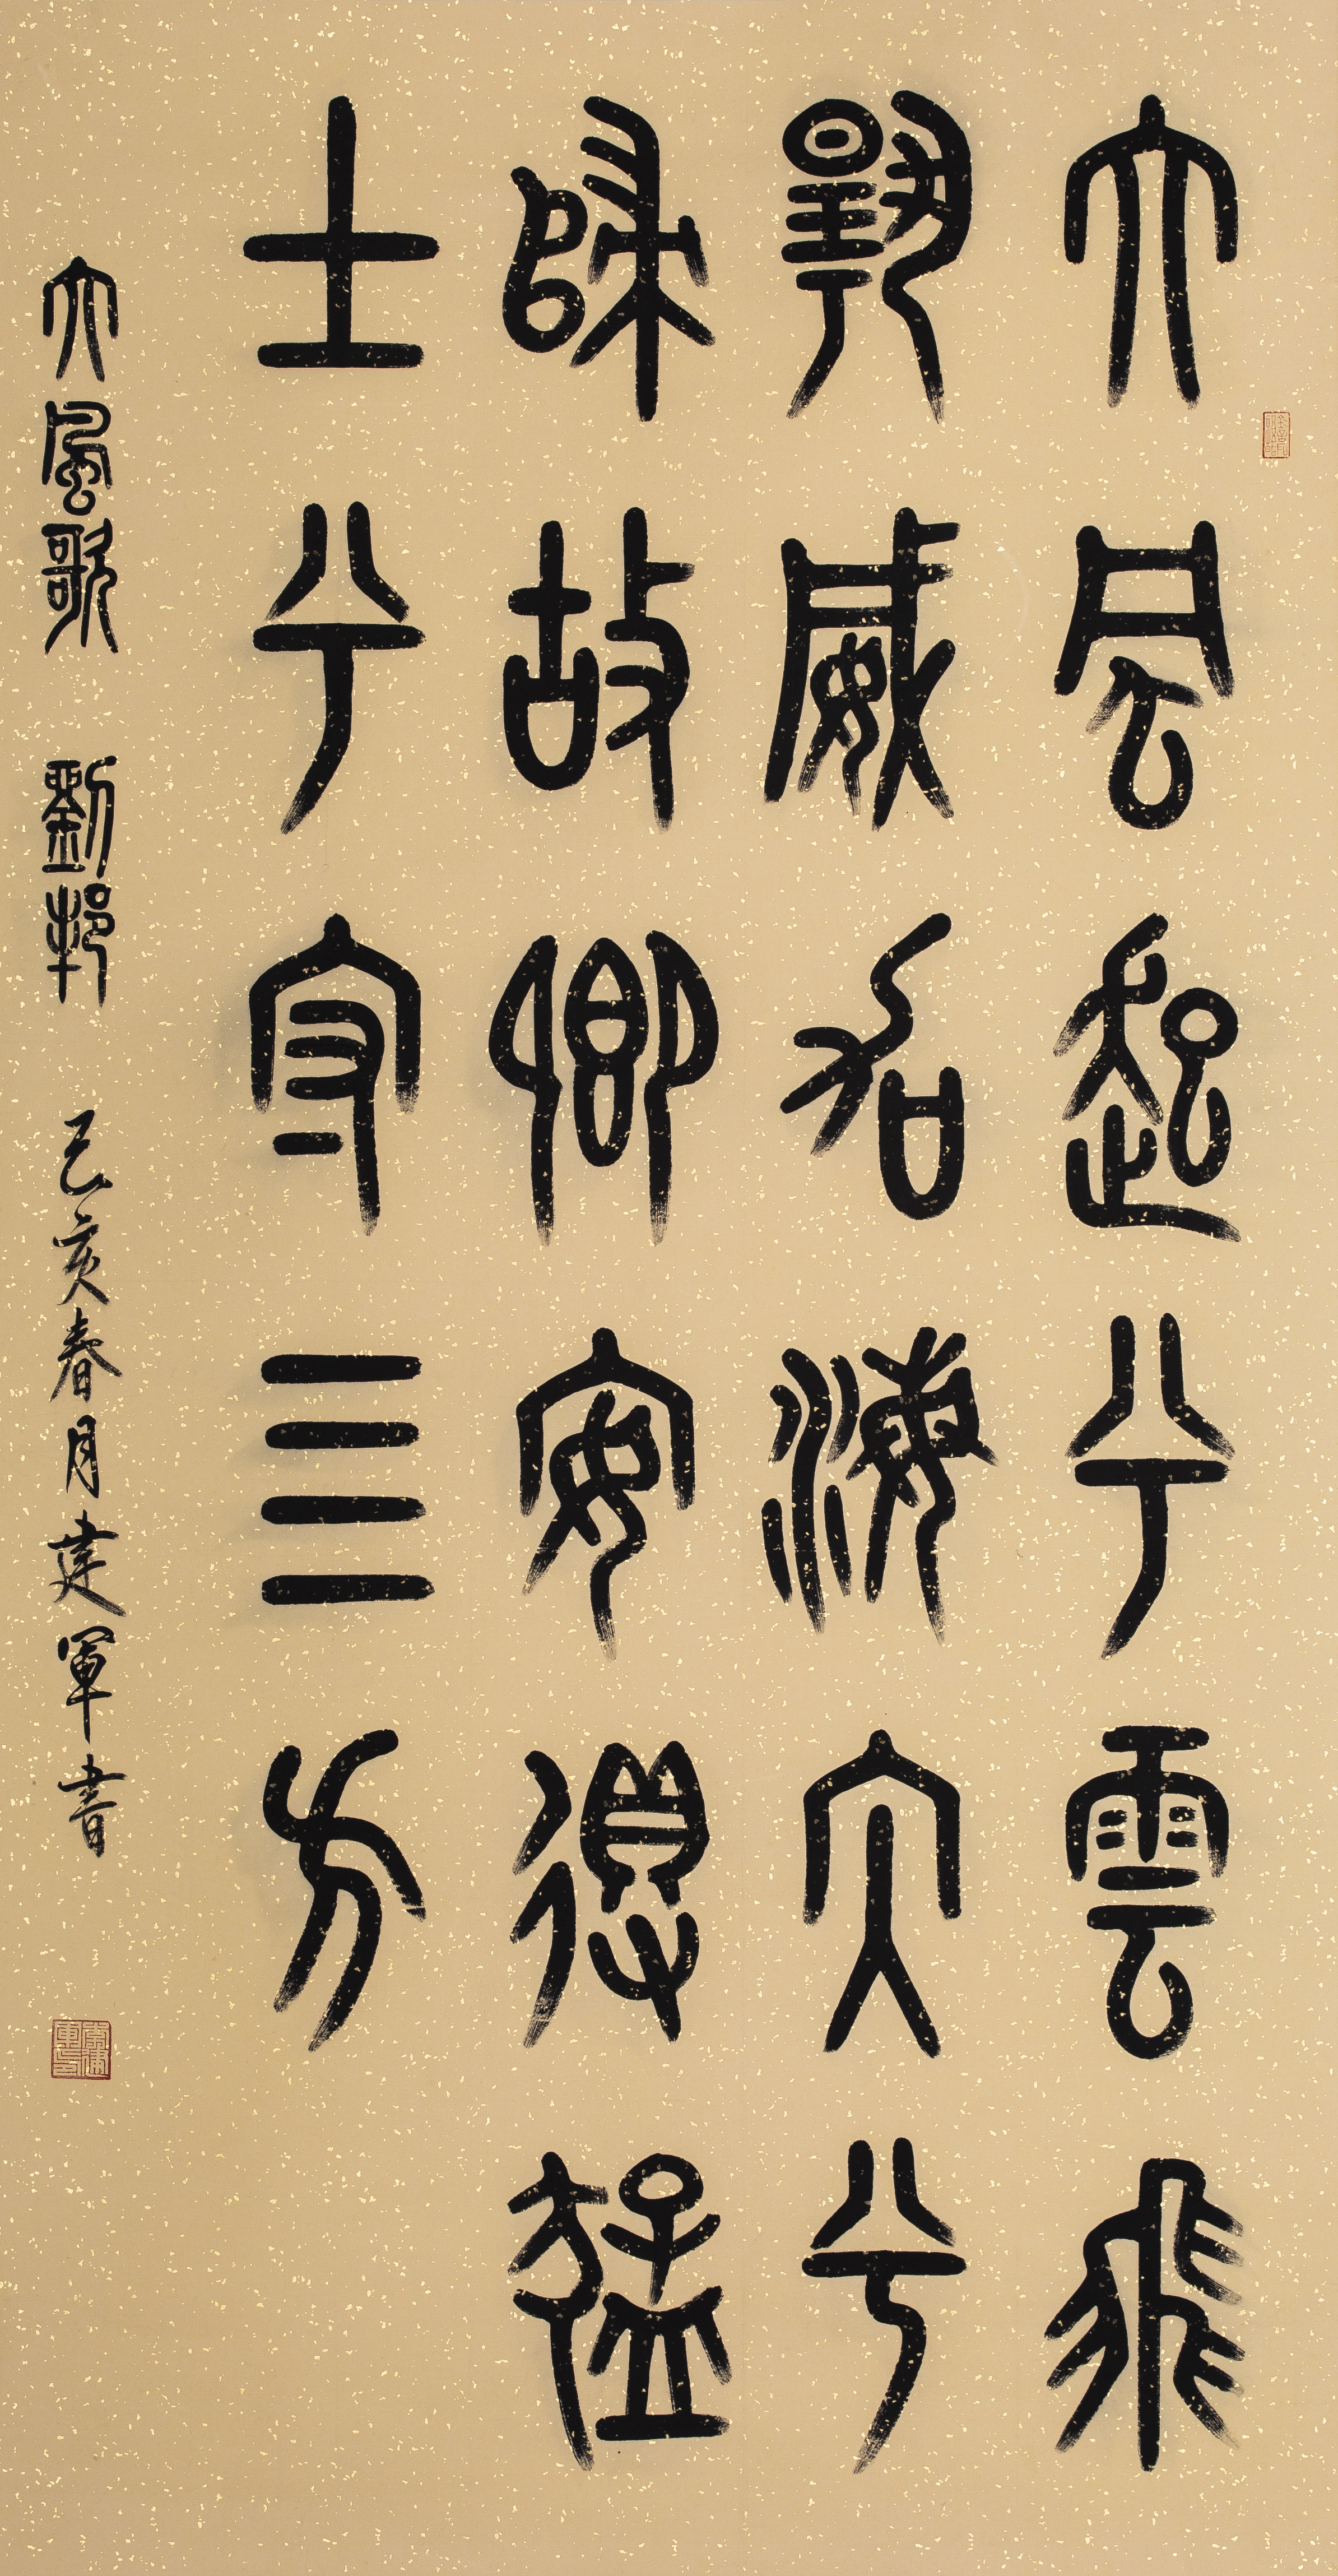 大風起兮雲飛
揚威加海內兮
歸故鄉安得猛
士兮守四方
大風歌 劉邦 己亥春月建軍書